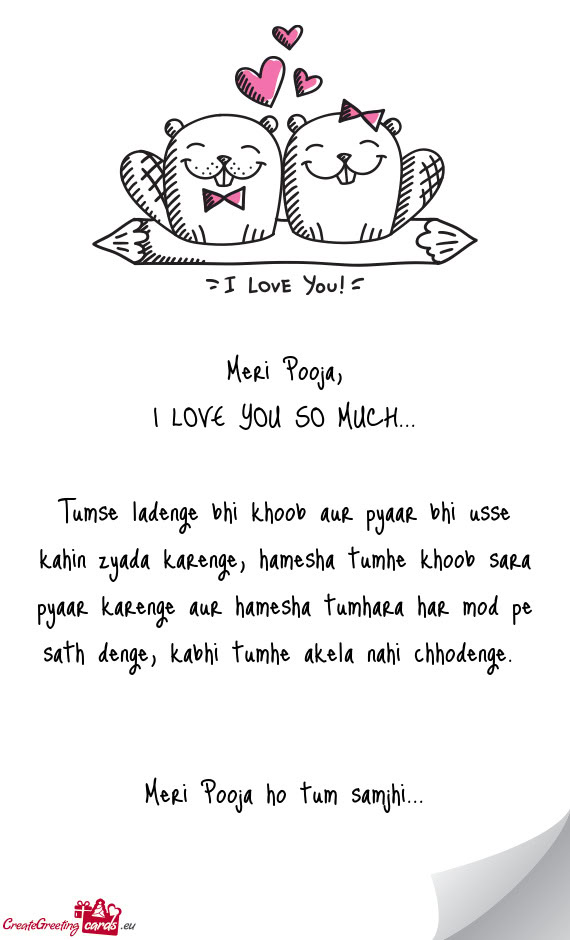 I LOVE YOU!
Meri Pooja,
I LOVE YOU SO MUCH...
Tumse ladenge bhi khoob aur pyaar bhi usse
kahin zyada karenge, hamesha tumhe khoob sara
pyaar karenge aur hamesha tumhara har mod pe
sath denge, kabhi tumhe akela nahi chhodenge.
Meri Pooja ho tum samjhi...
CreateGreeting cards .eu